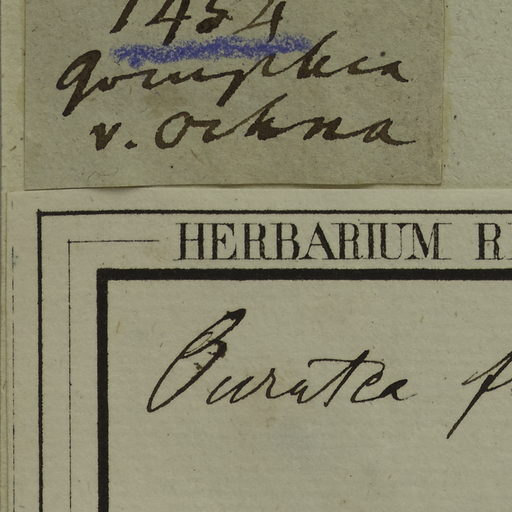 1454
Gomphia
v. Ochna
HERBARIUM
Ouratea